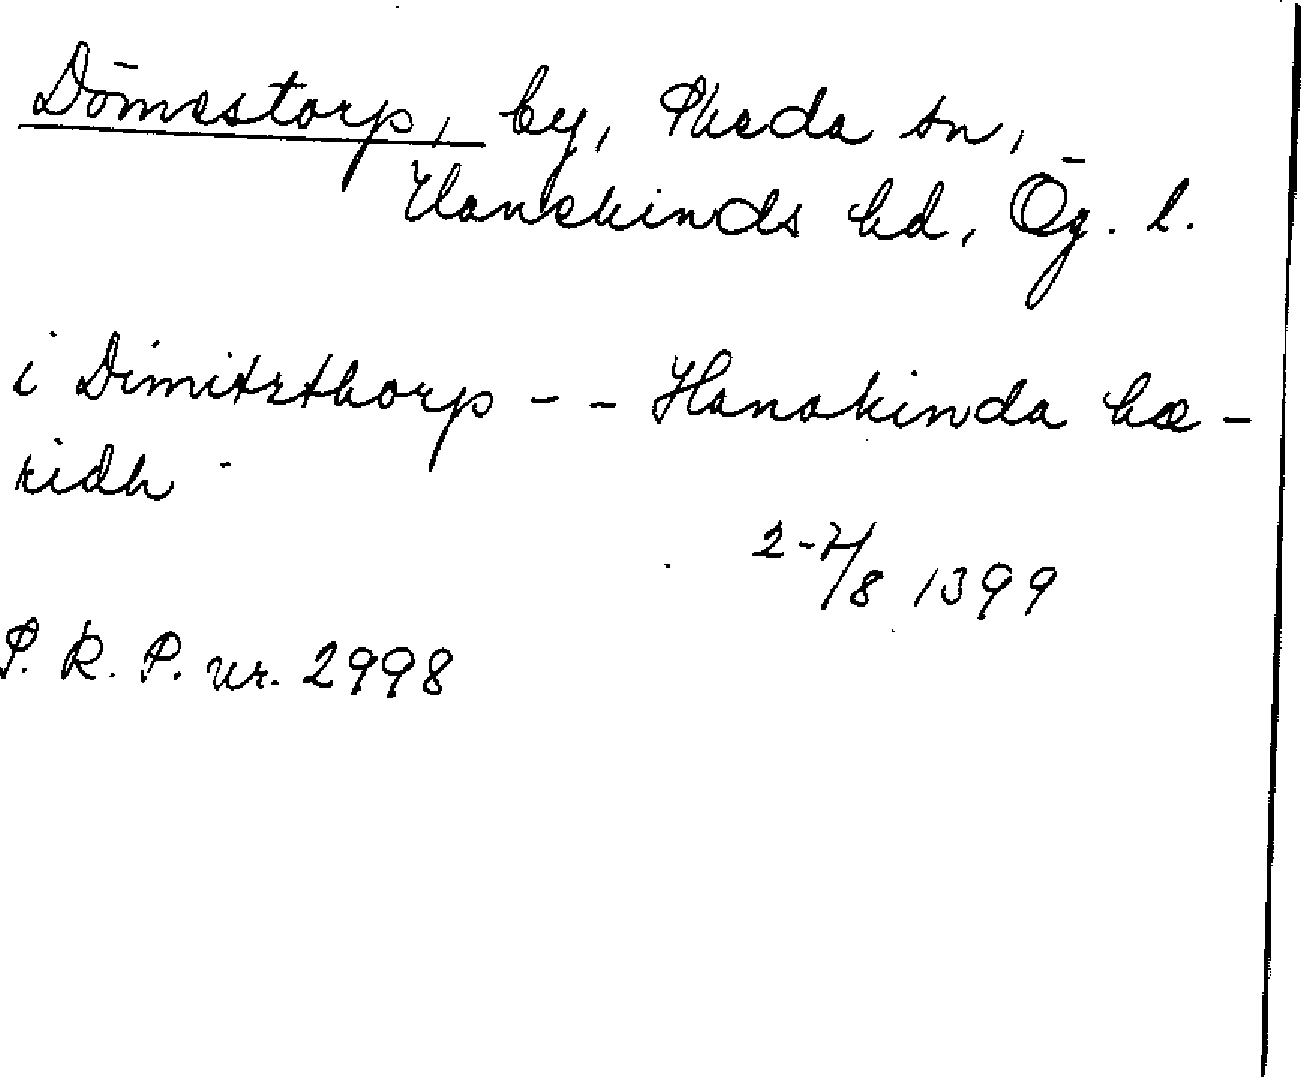 Dömestorp, by, Skeda sn,
Hanekinds hd, Ög. l.
i Dimitzthorp - - Hanakinda hæ-
ridh -
2-7/8 1399
P. R. P. nr. 2998